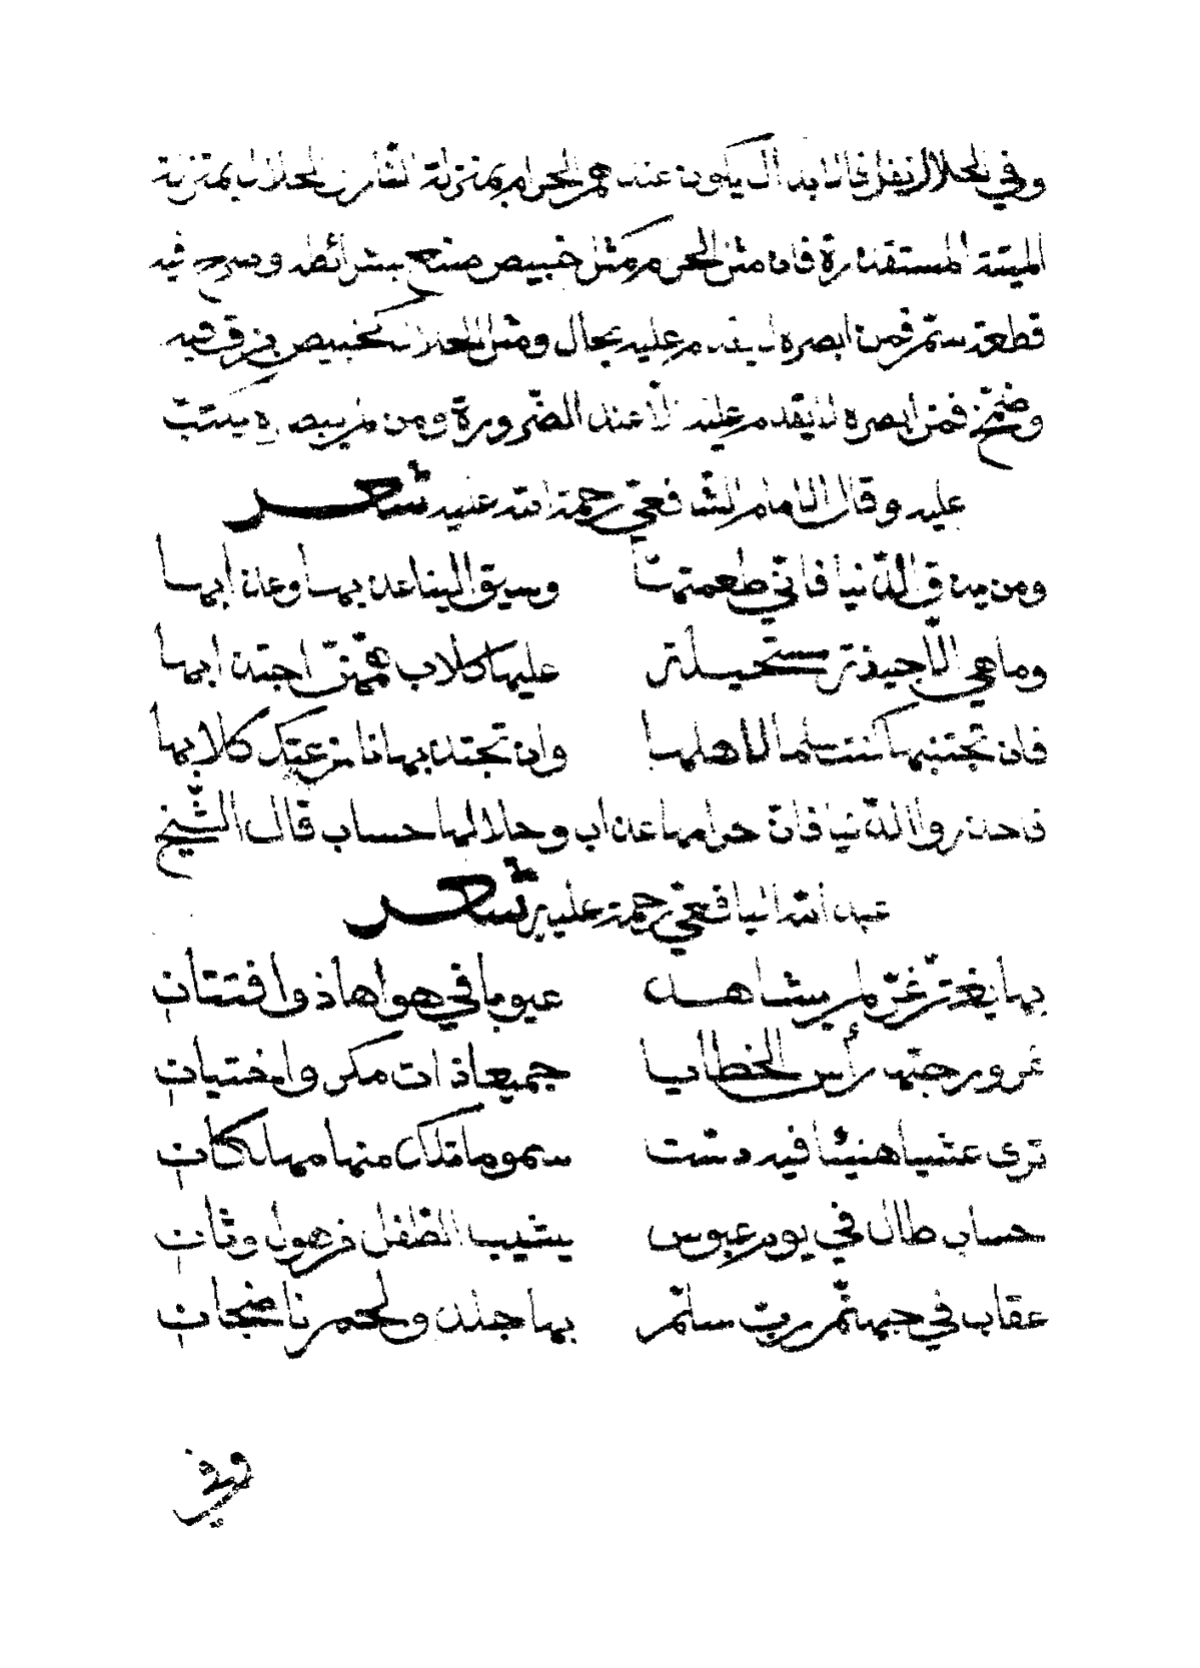 وفي الحلال نفل فالابدال يكون عندهم الحرام بمنزلة النار والحلال بمنزلة
الميتة المستقذرة فان مثل الحرام كمثل خبيص صنع بشرائطه وصرح فيه
قطعة ستم فمن ابصره لا يقدم عليه بحال ومثل الحلال كخبيص بزق فيه
وضمخ فمن ابصره لا يقدم عليه الا عند الضرورة ومن لم يبصره يكبّ
عليه وقال الامام الشافعي رحمة الله عليه شعر
ومن يذق الدنيا فاني طعمتها وسيق الينا عذبها وعذابها
وما هي الا جيفة مستحيلة عليها كلاب همهن اجتذابها
فان تجتنبها كنت سلما لاهلها وان تجتذبها نازعتك كلابها
فاحذروا الدنيا فان حرامها عذاب وحلالها حساب قال الشيخ
عبد الله اليافعي رحمة عليه شعر
بها يغتر غر لم يشاهد عيوبا في هواها ذو افتتان
غرور حبها رأس الخطايا جميعا ذات مكر واختيان
ترى عشيا هنيئا فيه دست سموما تلك منها مهلكات
حساب طال في يوم عبوس يشيب الطفل من هول وثان
عقاب في جهنم رب سلم بها جلد ولحم ناضجات
وفي